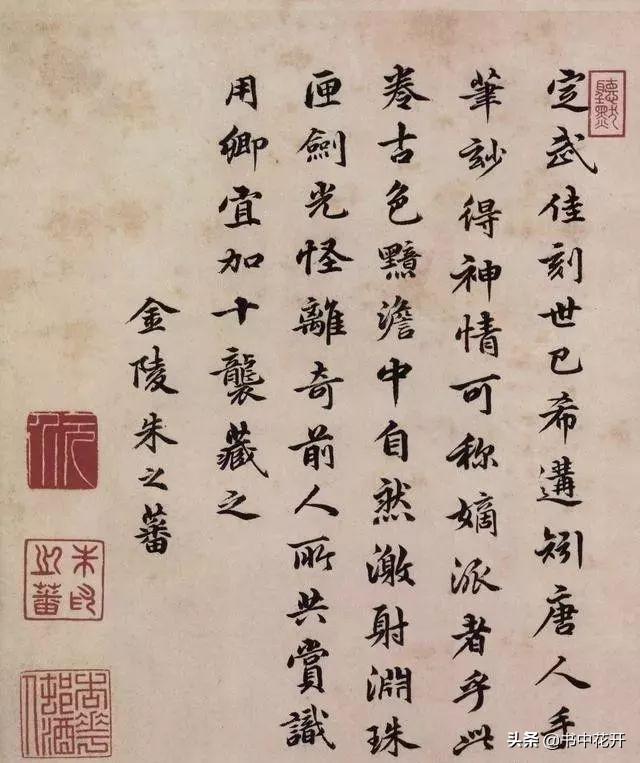 定武佳刻世已希遘矧唐人手
筆玅得神情可称嫡派者乎此
卷古色黯澹中自然激射淵珠
匣劍光怪離奇前人所共賞識
用卿宜加十襲藏之
金陵朱之蕃
头条 @书中花开